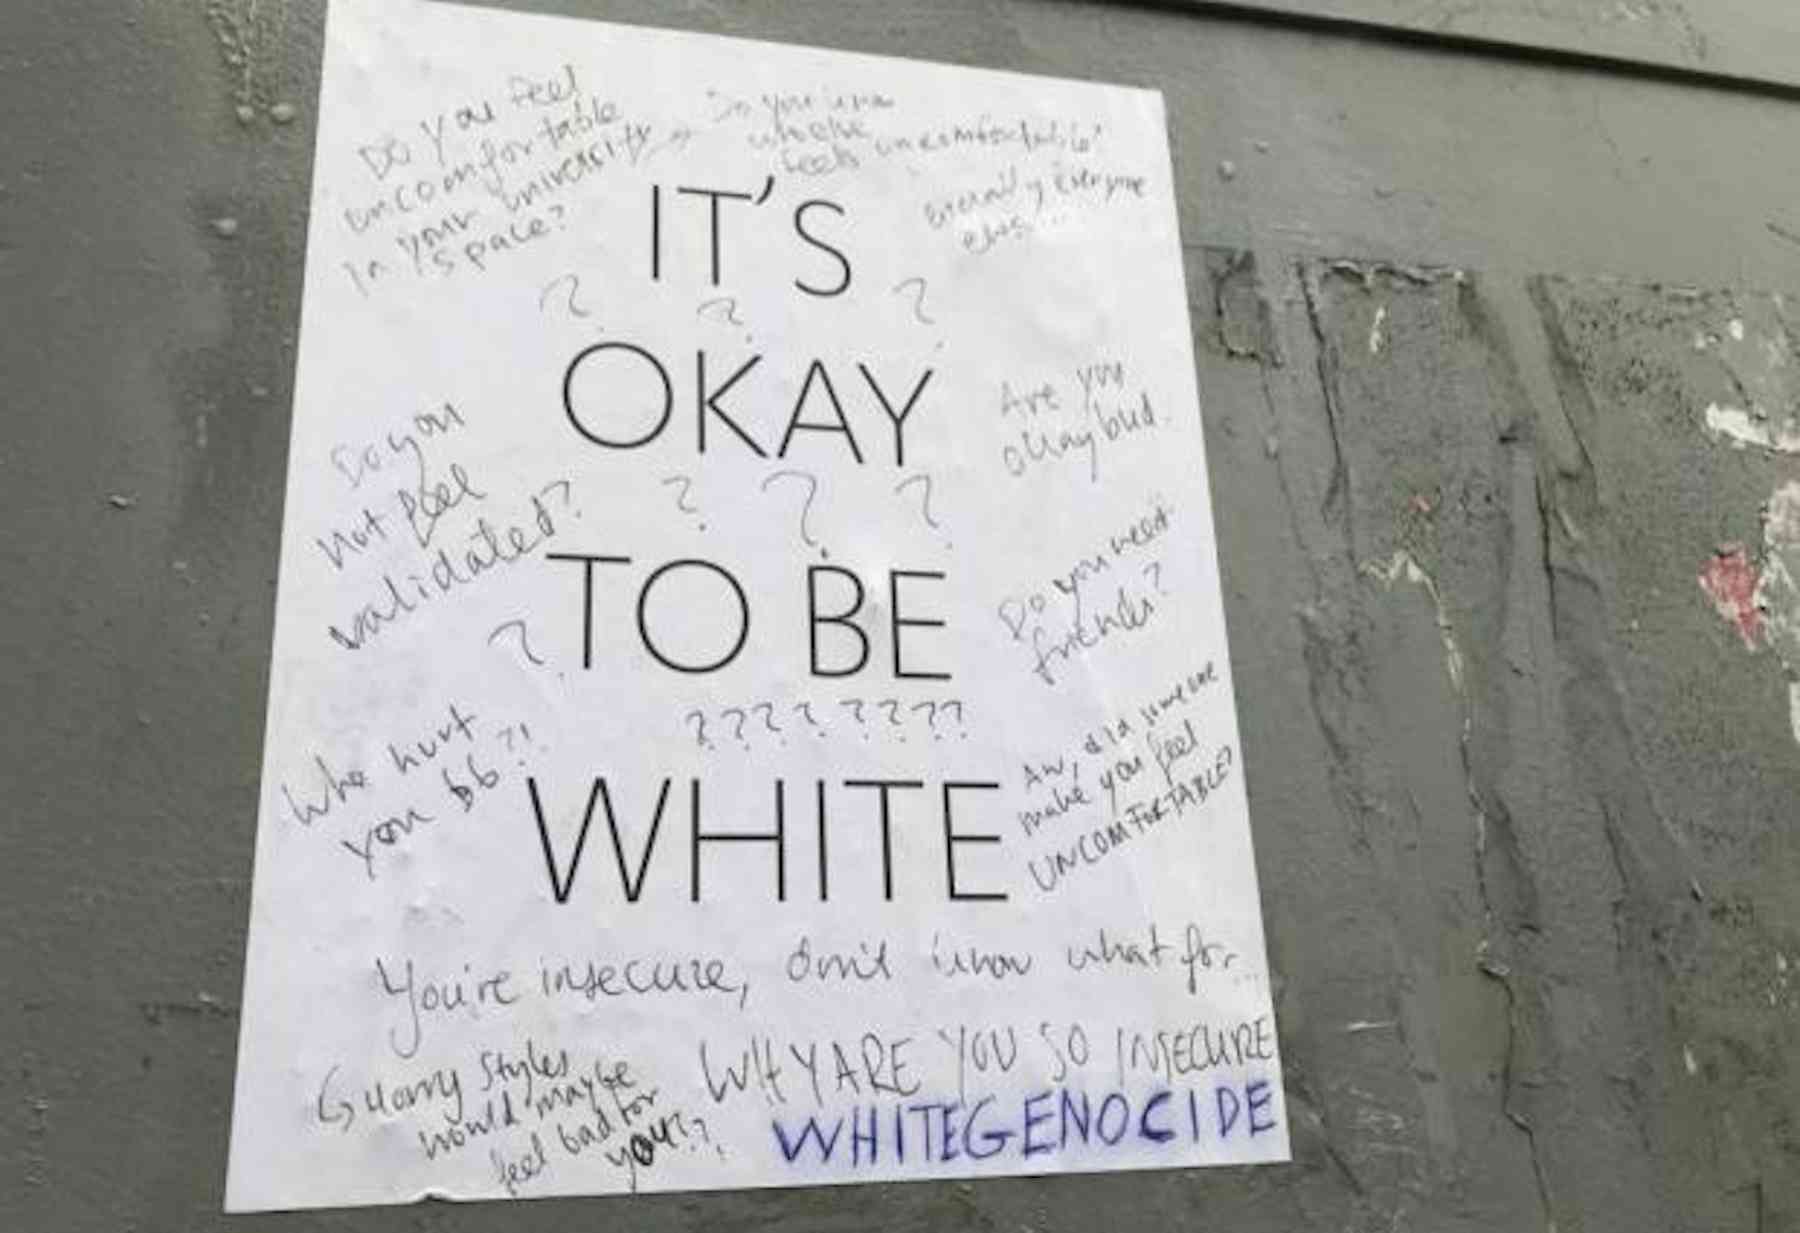 Do you feel
uncomfortable
in your university
space?
Do you know
who else
feels uncomfortable?
literally everyone
else....
IT'S
? ? ?
OKAY
Are you
okay bud.
Do you
not feel
validated?
? ? ?
TO BE
Do you need
friends?
?
? ? ? ? ? ? ? ?
Who hurt
you bb?!
WHITE
Aw, did someone
make you feel
UNCOMFORTABLE?
You're insecure, don't know what for...
↳ Harry Styles
would maybe
feel bad for
you??
WHY ARE YOU SO INSECURE
WHITEGENOCIDE